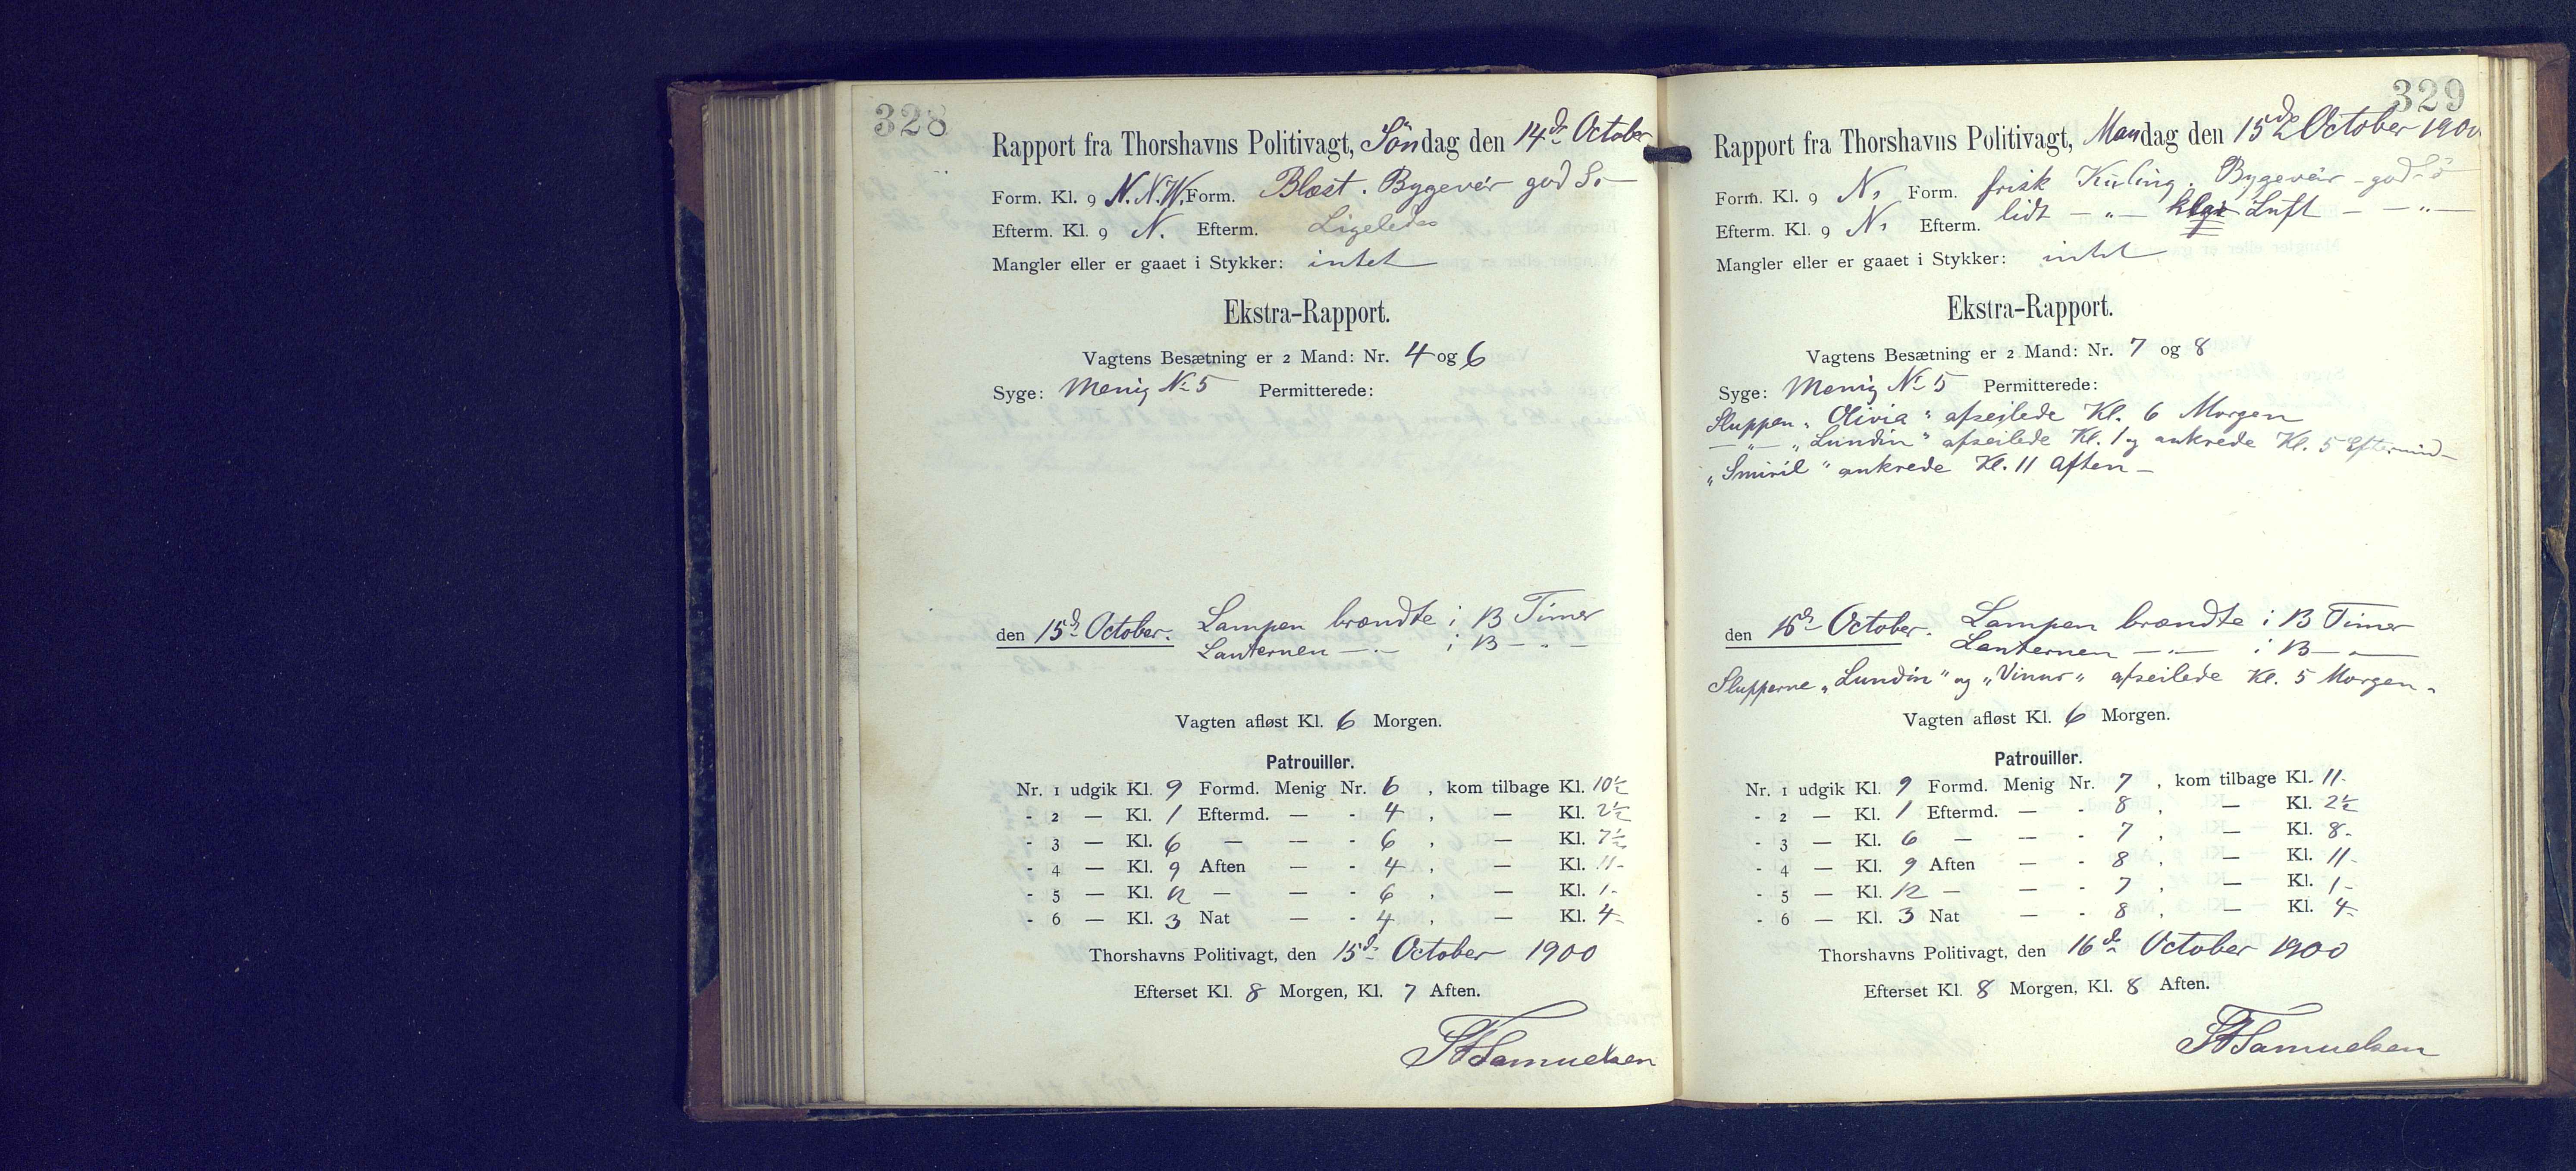 328
Rapport fra Thorshavns Politivagt, Söndag den 14de October
Form. Kl. 9 N.N.W. Form. Blæst. Bygeveir god Sö
Efterm. Kl. 9 N. Efterm. Ligeledes
Mangler eller er gaaet i Stykker: intet
Ekstra-Rapport.
Vagtens Besætning er 2 Mand: Nr. 4 og 6
Syge: Menig No 5 Permitterede:
den 15de October. Lampen brændte i 13 Timer
Lanternen — „ — i 13 — „ —
Vagten afløst Kl. 6 Morgen.
Patrouiller.
Nr. 1 udgik Kl. 9 Formd. Menig Nr. 6, kom tilbage Kl. 10½
- 2 — Kl. 1 Eftermd. — - 4, — Kl. 2½
- 3 — Kl. 6 — — - 6, — Kl. 7½
- 4 — Kl. 9 Aften — - 4, — Kl. 11-
- 5 — Kl. 12 — — - 6, — Kl. 1-
- 6 — Kl. 3 Nat — - 4, — Kl. 4-
Thorshavns Politivagt, den 15de October 1900
Efterset Kl. 8 Morgen, Kl. 7 Aften.
Samuelsen
329
Rapport fra Thorshavns Politivagt, Mandag den 15de October 1900
Form. Kl. 9 N. Form. frisk Kuling. Bygeveir - god Sö
Efterm. Kl. 9 N. Efterm. lidt — „ — Luft — — „ —
Mangler eller er gaaet i Stykker: intet
Ekstra-Rapport.
Vagtens Besætning er 2 Mand: Nr. 7 og 8
Syge: Menig No 5 Permitterede:
Sluppen „Olivia“ afseilede Kl. 6 Morgen
— „ — „Lundin“ afseilede Kl. 1 og ankrede Kl. 5 Eftermid-
„Smiril“ ankrede Kl. 11 Aften -
den 16de October. Lampen brændte i 13 Timer
Lanternen — „ — i 13 — „ —
Slupperne „Lundin“ og „Vinur“ afseilede Kl. 5 Morgen.
Vagten afløst Kl. 6 Morgen.
Patrouiller.
Nr. 1 udgik Kl. 9 Formd. Menig Nr. 7, kom tilbage Kl. 11-
- 2 — Kl. 1 Eftermd. — - 8, — Kl. 2½
- 3 — Kl. 6 — — - 7, — Kl. 8-
- 4 — Kl. 9 Aften — - 8, — Kl. 11-
- 5 — Kl. 12 — — - 7, — Kl. 1-
- 6 — Kl. 3 Nat — - 8, — Kl. 4-
Thorshavns Politivagt, den 16de October 1900
Efterset Kl. 8 Morgen, Kl. 8 Aften.
Samuelsen